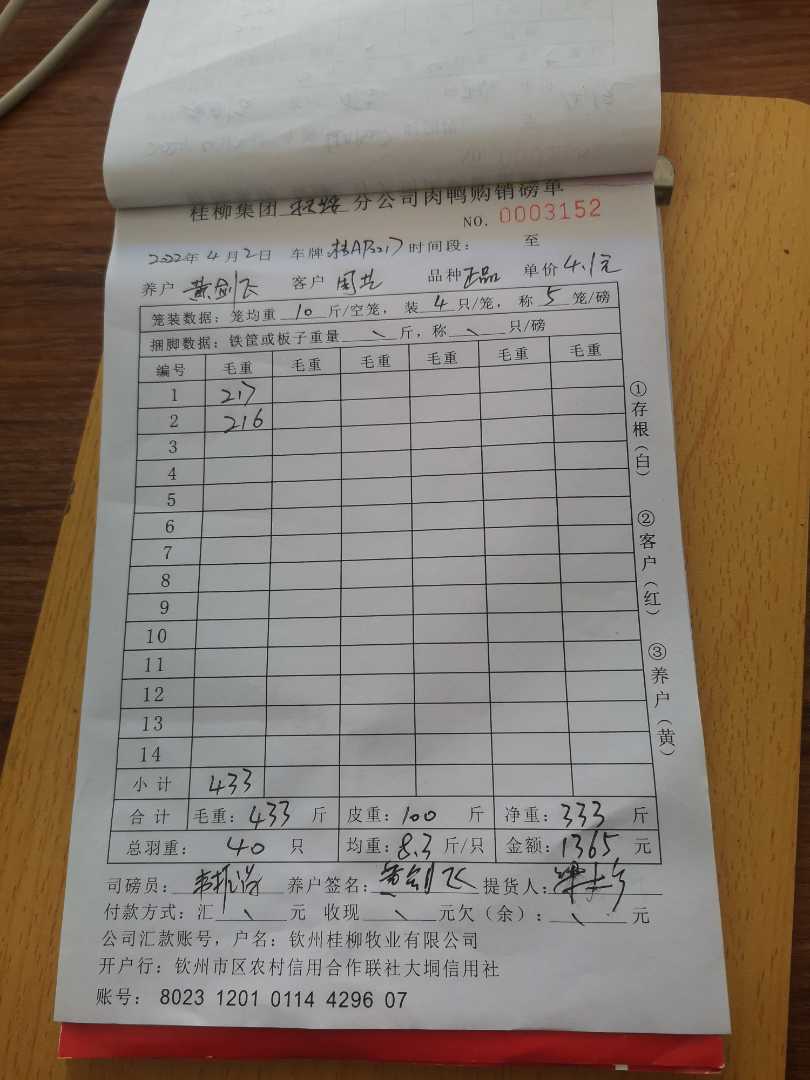 桂柳集团 分公司肉鸭购销磅单
NO. 0003152
2022年4月2日 车牌 时间段： 至
养户 黄剑飞 客户 周艺 品种 正品 单价 4.1元
笼装数据：笼均重 10 斤/空笼，装 4 只/笼，称 5 笼/磅
捆脚数据：铁筐或板子重量 \ 斤，称 \ 只/磅
编号 毛重 毛重 毛重 毛重 毛重 毛重
1 217
2 216
3
4
5
6
7
8
9
10
11
12
13
14
小计 433
合计 毛重：433 斤 皮重：100 斤 净重：333 斤
总羽重： 40 只 均重：8.3 斤/只 金额：1365 元
司磅员： 养户签名：黄剑飞 提货人：
付款方式：汇 \ 元 收现 \ 元欠（余）： \ 元
公司汇款账号，户名：钦州桂柳牧业有限公司
开户行：钦州市区农村信用合作联社大垌信用社
账号： 8023 1201 0114 4296 07
①存根（白） ②客户（红） ③养户（黄）